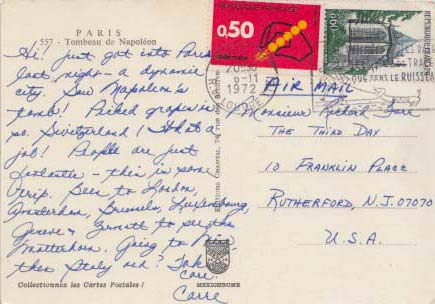 PARIS
557 - Tombeau de Napoléon
Hi! Just got into Paris
last night - a dynamic
city. Saw Napoleon's
tomb! Picked grapes in
so. Switzerland! What a
job! People are just
fantastic - this is some
trip. Been to London,
Amsterdam, Brussels, Luxembourg,
Geneva & Zermatt to see the
Matterhorn. Going to Nice
then Italy Take
care.
Carre
Collectionnez les Cartes Postales !
EDITIONS CHANTAL, 74, rue des
MEXICHROME
0,50
1972
AIR MAIL
Monsieur Richard
THE THIRD DAY
10 FRANKLIN PLACE
RUTHERFORD, N.J. 07070
U.S.A.